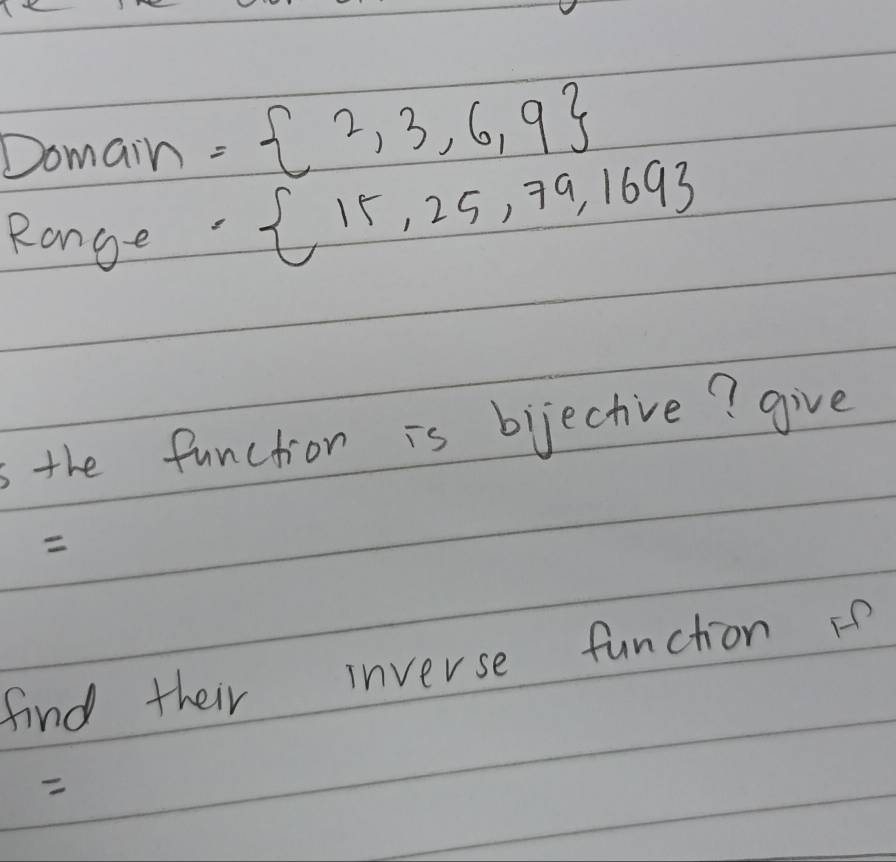 Domain = { 2, 3, 6, 9 }
Range = { 15, 25, 79, 169 }
the function is bijective? give
=
find their inverse function if
=